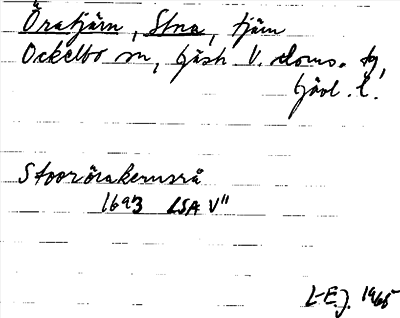 Öratjärn, Stora, tjärn
Ockelbo sn, Gästr. V. doms. tg,
Gävl. l.
Stoorörakernsrå
1693 LSA V"
L-E.J. 1965